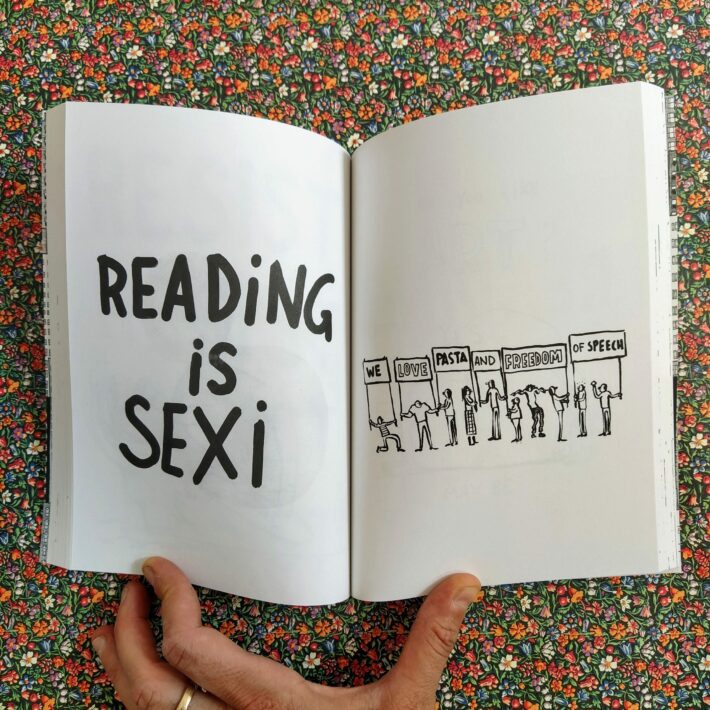 READiNG
iS
SEXi
WE LOVE PASTA AND FREEDOM OF SPEECH